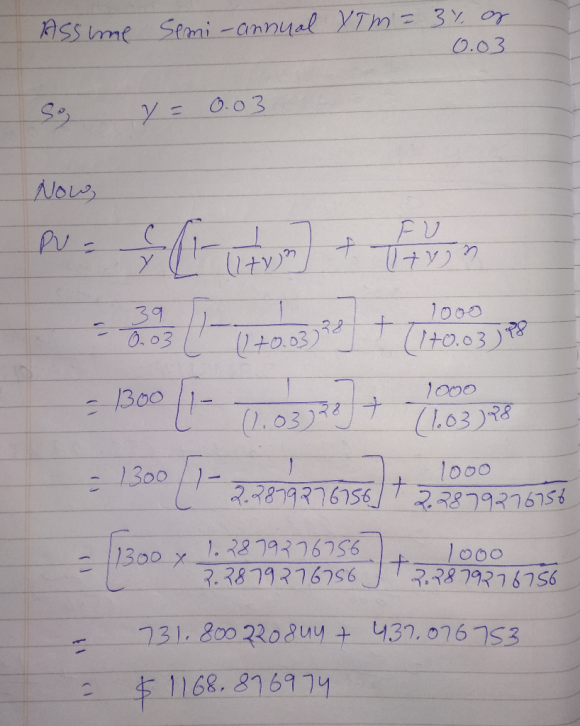 Assume Semi-annual YTM = 3% or
0.03
So, y = 0.03
Now,
PV = C/y [1 - 1/(1+y)^n] + FV/(1+y)^n
= 39/0.03 [1 - 1/(1+0.03)^28] + 1000/(1+0.03)^28
= 1300 [1 - 1/(1.03)^28] + 1000/(1.03)^28
= 1300 [1 - 1/2.2879276756] + 1000/2.2879276756
= [1300 × 1.2879276756/2.2879276756] + 1000/2.2879276756
= 731.800220844 + 437.076753
= $1168.876974